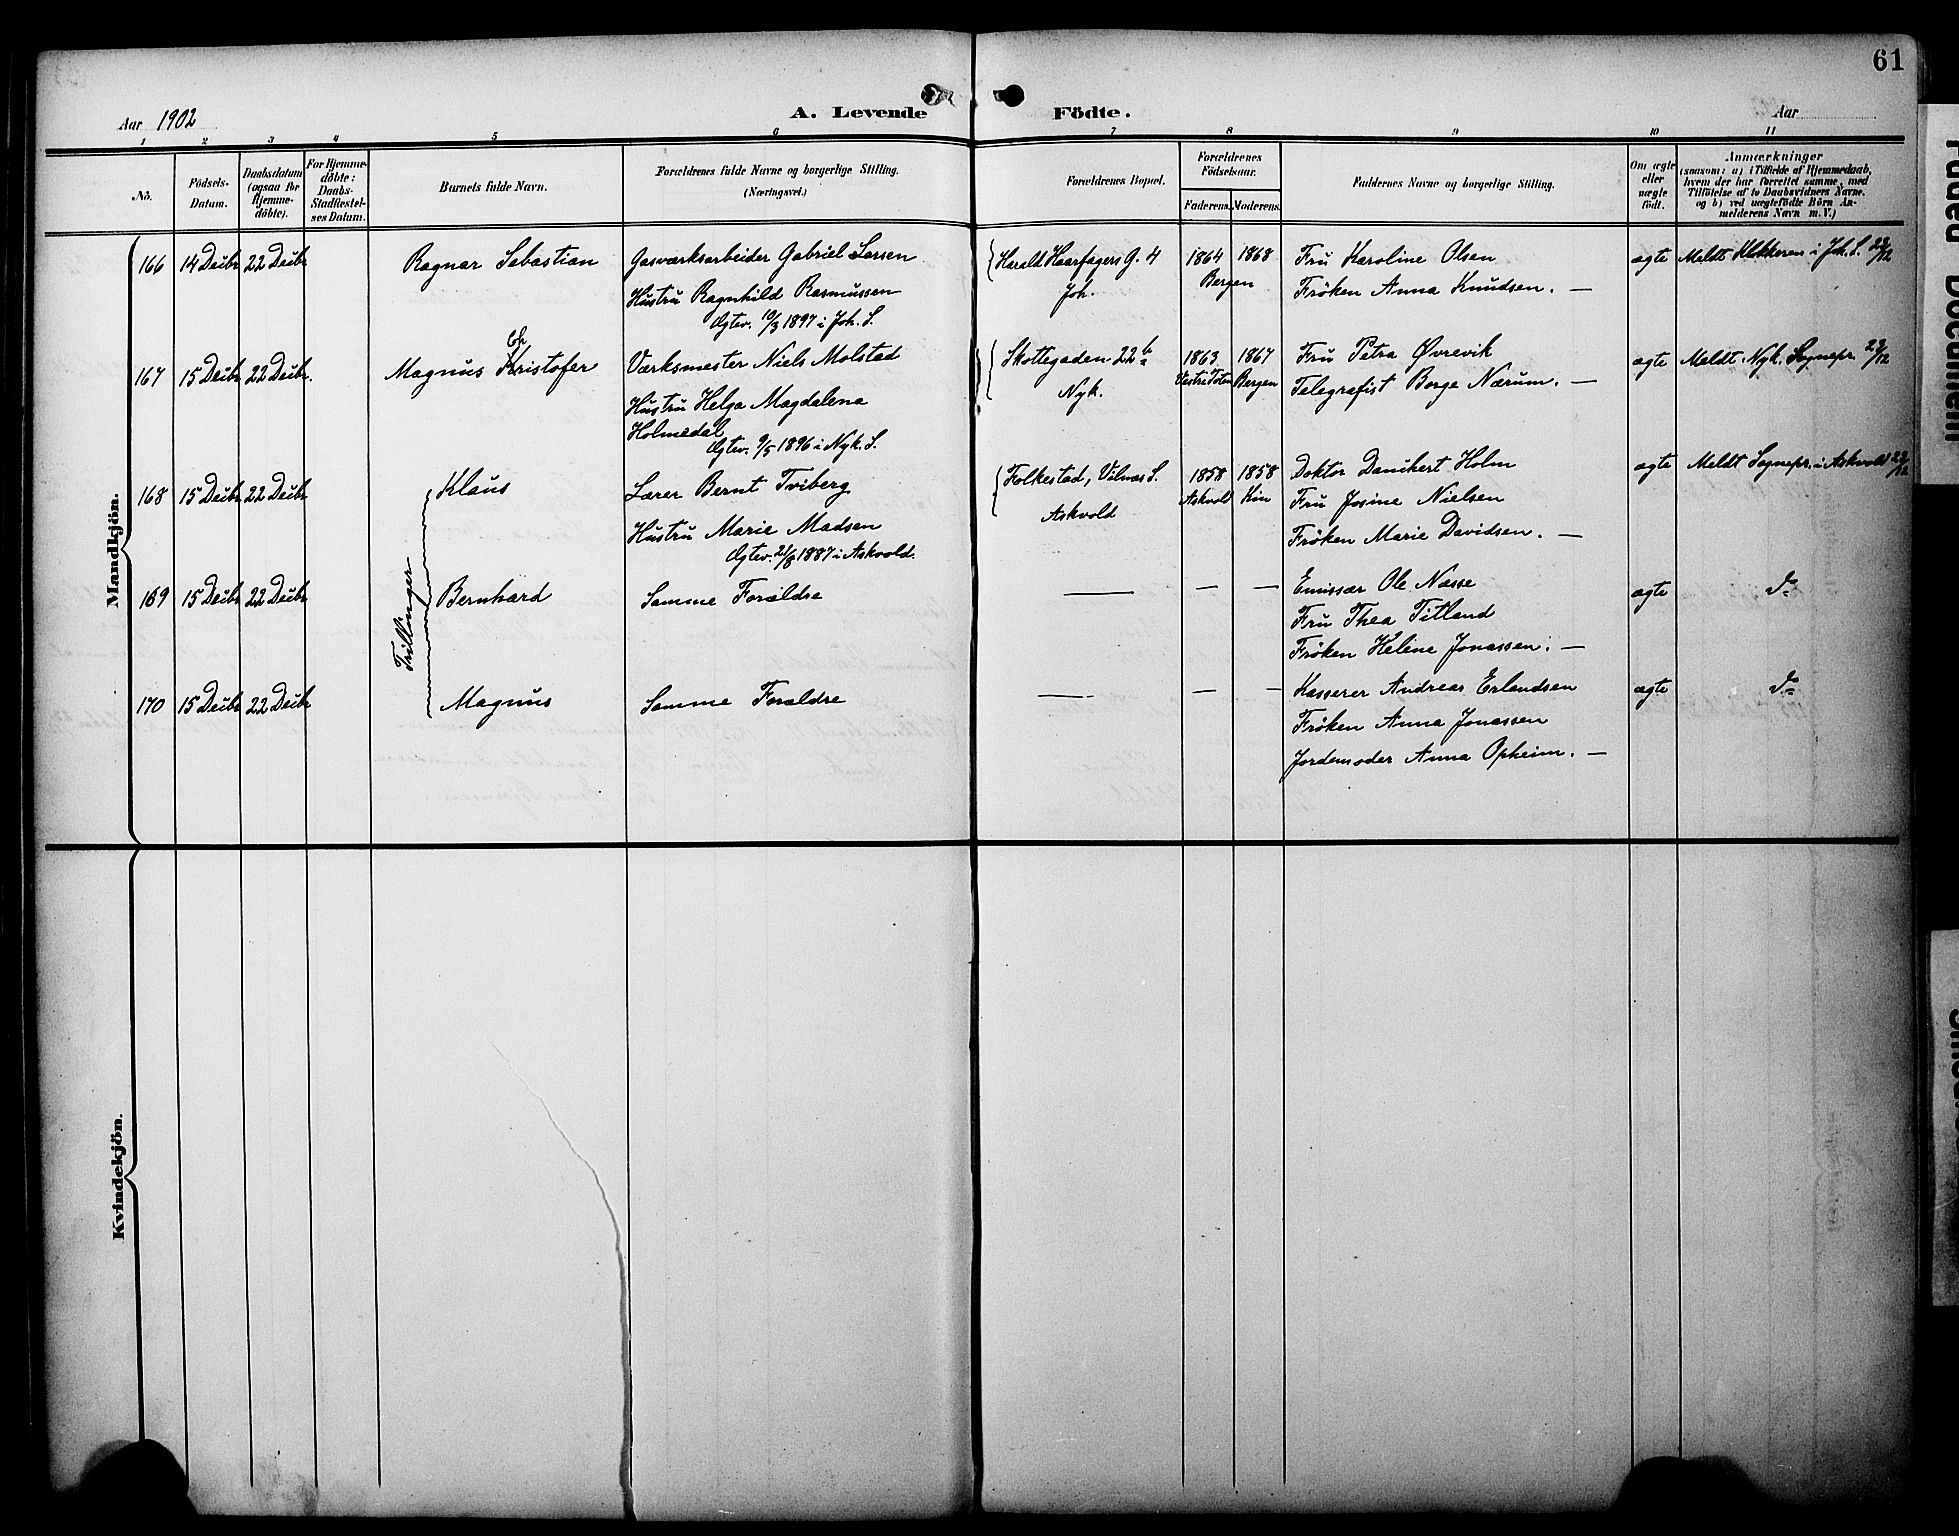 61
Aar 1902
A. Levende Födte.
Aar
1 2 3 4 5 6 7 8 9 10 11
No.
Födsels-Datum.
Daabsdatum (ogsaa for Hjemmedöbte).
For Hjemmedöbte: Daabs-Stadfæstelses Datum.
Barnets fulde Navn.
Forældrenes fulde Navne og borgerlige Stilling. (Næringsvei.)
Forældrenes Bopæl.
Forældrenes Födselsaar.
Faderens. Moderens.
Faddernes Navne og borgerlige Stilling.
Om ægte eller uægte födt.
Anmærkninger
(saasom: a) i Tilfælde af Hjemmedaab,
hvem der har forrettet samme, med
Tilföielse af to Daabsvidners Navne.
og b) ved uægtefödte Börn An-
melderens Navn m. V.)
Mandkjön.
166 14 Decbr 22 Decbr Ragnar Sebastian Gasværksarbeider Gabriel Larsen Harald Haarfagers G. 4 1864 1868 Fru Karoline Olsen ægte Meldt Klokkeren i Joh. S. 23/12
Hustru Ragnhild Rasmussen Joh. Bergen Fröken Anna Knudsen. —
Ægtev. 10/3 1897 i Joh. S.
Ch
167 15 Decbr 22 Decbr. Magnus Kristofer Værksmester Niels Molstad Skottegaden 22 b 1863 1867 Fru Petra Øvrevik ægte Meldt Nyk. Sognepr. 23/12
Hustru Helga Magdalena Nyk. Vestre Toten Bergen Telegrafist Borge Nærum. —
Holmedal
Ægtev. 9/5 1896 i Nyk. S.
168 15 Decbr 22 Decbr Klaus Lærer Bernt Tviberg Folkestad, Vilnæs S. 1858 1858 Doktor Danckert Holm ægte Meldt Sognepr. i Askvold 23/12
Askvold Askvold Kin Fru Josine Nielsen
Hustru Marie Madsen Fröken Marie Davidsen. —
Ægtev. 21/8 1887 i Askvold.
Trillinger
169 15 Decbr 22 Decbr Bernhard Samme Forældre — — — Emissær Ole Næsse ægte do
Fru Thea Titland
Fröken Helene Jonassen. —
170 15 Decbr 22 Decbr Magnus Samme Forældre — — — Kasserer Andreas Erlandsen ægte do
Fröken Anna Jonassen
Jordemoder Anna Opheim. —
Kvindekjön.
Faded Document